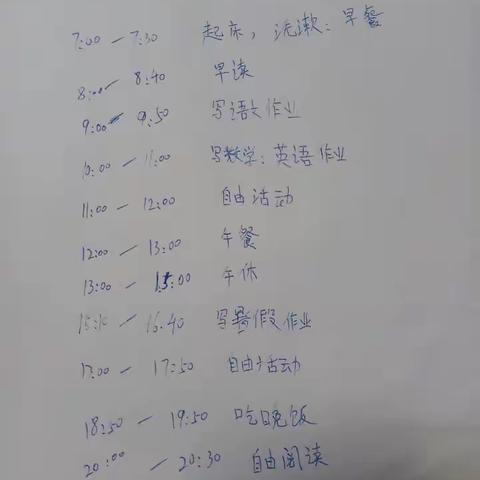 7:00 — 7:30 起床, 洗漱: 早餐
8:00 — 8:40 早读
9:00 — 9:50 写语文作业
10:00 — 11:00 写数学: 英语作业
11:00 — 12:00 自由活动
12:00 — 13:00 午餐
13:00 — 15:00 午休
15:10 — 16:40 写暑假作业
17:00 — 17:50 自由活动
18:50 — 19:50 吃晚饭
20:00 — 20:30 自由阅读